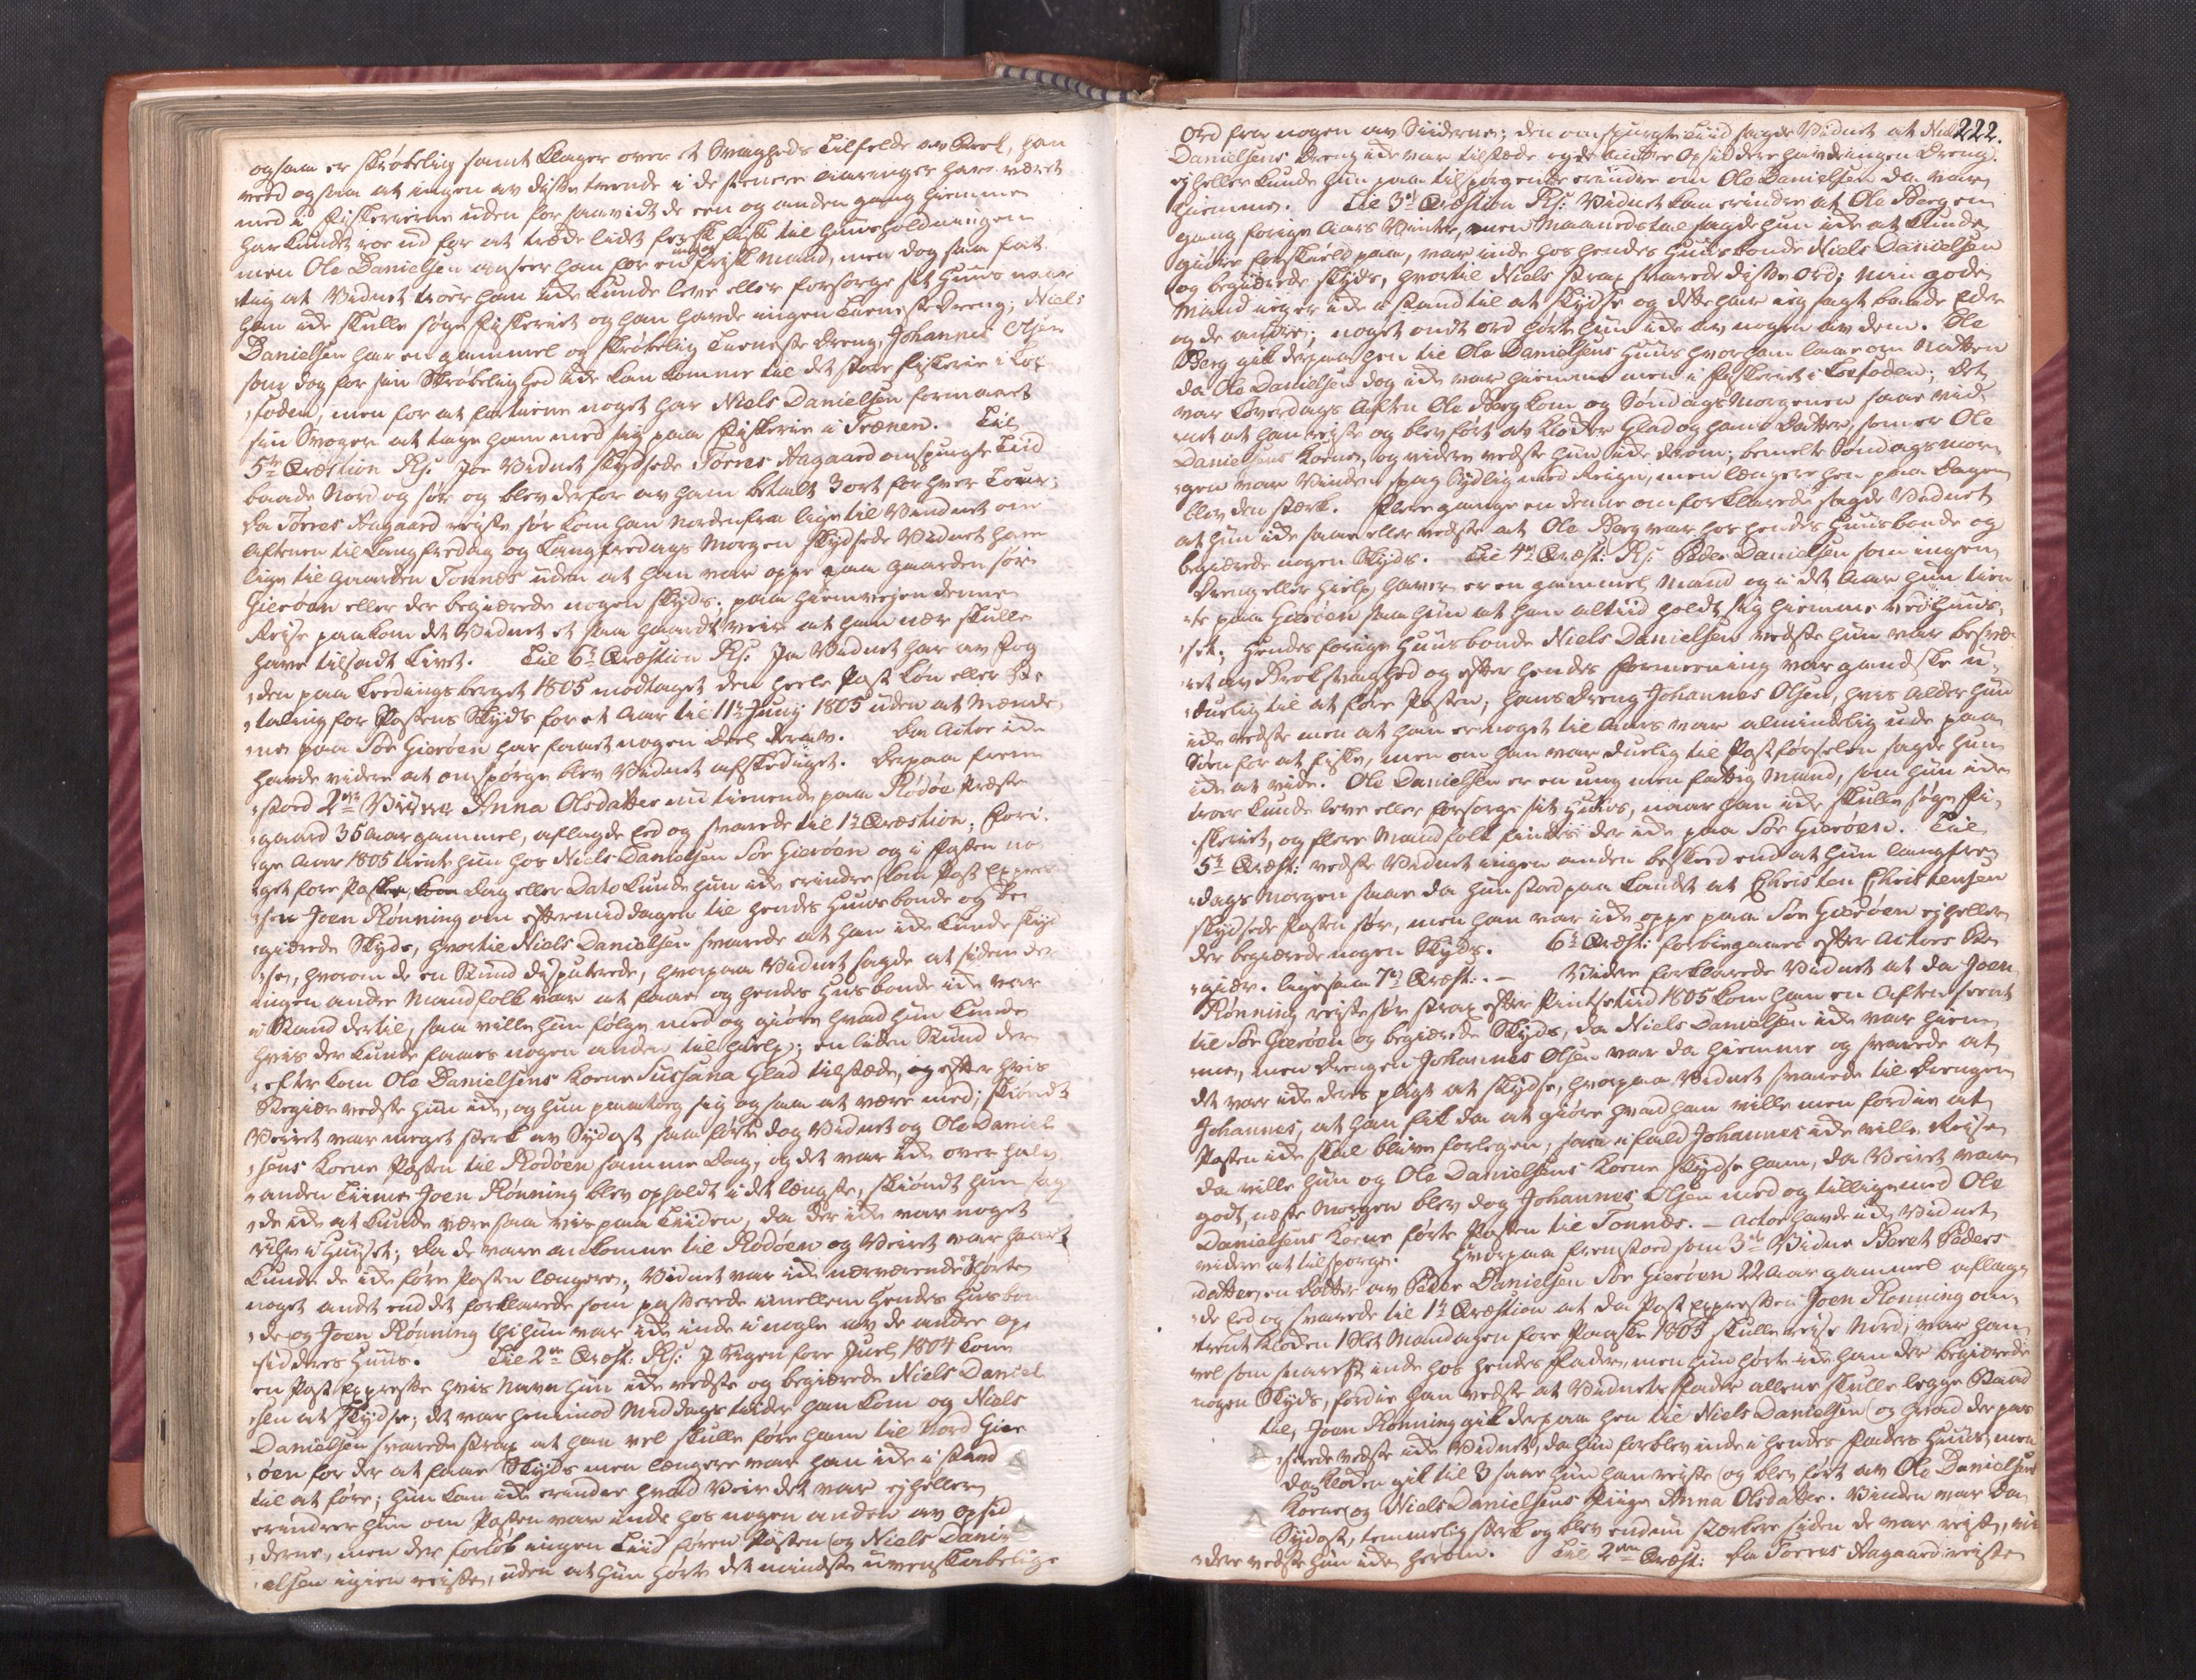 ogsaa er skrøbelig samt klager over et Svagheds Tilfælde av Brok, han
veed ogsaa at ingen av disse trende i de senere Aaringer have været
med i Fiskerierne uden for saavidt de een og anden gang hjemme
har kundet roe ud for at træde lidt fersk fisk til Huusholdningen
men Ole Danielsen anseer han for en ung frisk Mand, men dog saa fat-
tig at Vidnet troer han icke kunde leve eller forsørge sit Huus naar
han icke skulle søge Fiskeriet og han havde ingen tieneste dreng; Niels
Danielsen har en gammel og skrøbelig Tieneste dreng, Johannes Olsen
som dog for sin Skrøbelighed icke kan komme til det store fiskerie i Lof-
foden, men for at fortiene noget har Niels Danielsen formaaet
sin Svoger at tage ham med sig paa Fiskerie i Trænen. Til
5te Qvæstion Rs: Joe Vidnet skydsede Torres Aagaard omspurgte Tiid
baade Nord og sør og blev derfor av ham betalt 3 ort for hver Tour;
da Torres Aagaard reiste sør kom han Nordenfra lige til Vidnet om
Aftenen til Langfredag og Langfredags Morgen skydsede Vidnet ham
lige til Gaarden Tonnes uden at han var oppe paa gaarden sør
Gierøen eller der begiærede nogen skyds; paa hiemveyen denne
Reise paakom det Vidnet et saa haardt veir at han nær skulle
have tilsadt Livet. Til 6te Qvæstion Rs: Ja Vidnet har av Fog-
den paa Leedingsberget 1805 modtaget den heele Post Løn eller Be-
taling for Postens Skyds for et Aar til 11te Juny 1805 uden at Mænde-
ne paa Sør Gierøen har faaet nogen Deel derav. Da Actor icke
havde videre at omspørge blev Vidnet afskediget. Derpaa frem-
stoed 2det Vidne Anna Olsdatter nu tienende paa Rødøe Præste-
gaard 35 Aar gammel, aflagde Eed og svarede til 1te Qvæstion; Fori-
ge Aar 1805 tiente hun hos Niels Danielsen Sør Gierøen og i Fasten no-
get fore Paaske, Dag eller Dato kunde hun icke erindre kom Post Expres-
sen Joen Rønning om eftermiddagen til hendes Huusbonde og be-
giærede Skyds, hvortil Niels Danielsen svarede at han icke kunde skyd-
se, hvorom de en Stund disputerede, hvorpaa Vidnet sagde at siden der
ingen andre Mandfolk var at faae og hendes Husbonde icke var
i Stand dertil, saa ville hun følge med og giøre hvad hun kunde
hvis der kunde faaes nogen anden til hielp; en liden Stund der-
efter kom Ole Danielsens Koene Sussana Glad tilstæde, og efter hvis
Begiær vedste hun icke, og hun paatog sig ogsaa at være med; skiøndt
Veiret var meget sterk av Sydost saa førte dog Vidnet og Ole Daniel-
sens Koene Posten til Rødøen samme Dag, og det var icke over halv-
anden Tiime Joen Rønning blev opholdt i det længste, skiøndt hun sag-
de icke at kunde være saa vis paa Tiiden, da der icke var noget
Uhr i Huuset; da de vare ankomne til Rødøen og Veiret var haart
kunde de icke føre Posten længere; Vidnet var icke nærværende og hørte
noget andet end det forklarede som passerede imellem hendes Husbon-
de og Joen Rønning thi hun var icke inde i nogle av de andre Op-
sidderes Huus. Til 2den Qvæst: Rs: I Ugen fore Juel 1804 kom
en Post Expresse hvis Navn hun icke vedste og begiærede Niels Daniel-
sen at skydse; det var henimod Middags tider han kom og Niels
Danielsen svarede strax at han vel skulle føre ham til Nord Gier-
øen for der at faae Skyds men længere var han icke i stand
til at føre; hun kan icke erindre hvad Veir det var ey heller
erindrer hun om Posten var inde hos nogen anden av Opsid-
derne, men der forløb ingen Tiid føren Posten og Niels Dani-
elsen igien reiste, uden at hun hørte det mindste uvenskabelige
222.
Ord fra nogen av Siiderne; den omspurgte Tiid sagde Vidnet at Niels
Danielsens Dreng icke var tilstæde og de andre Opsiddere havde ingen Dreng.
ey heller kunde hun paa tilspørgende erindre om Ole Danielsen da var
hiemme. Til 3die Qvæstion Rs: Vidnet kan erindre at Ole Berg en
gang forige Aars Vinter, men Maaneds tal sagde hun icke at kunde
giøre forskield paa, var inde hos hendes Huusbonde Niels Danielsen
og begiærede skyds, hvortil Niels strax svarede disse ord; min gode
Mand ieg er icke i stand til at skydse og dette har ieg sagt baade Eder
og de andre; noget ondt ord hørte hun icke av nogen av dem. Ole
Berg gik derpaa hen til Ole Danielsens Huus hvor han laae om Natten
da Ole Danielsen dog icke var hiemme men i fiskeriet i Loffoden; Det
var Løverdags Aften Ole Berg kom og Søndags Morgenen saae Vid-
net at han reiste og blev ført av Kloster Glad og hans Datter, som er Ole
Danielsens Koene, og videre vedste hun icke derom; bemelte Søndags mor-
gen var Vinden spag Sydlig med Reign, men længere hen paa Dagen
blev den stærk. Flere gange end denne om forklarede sagde Vidnet
at hun icke saae eller vedste at Ole Berg var hos hendes Huusbonde og
begiærede nogen Skyds. Til 4de Qvæst: Rs: Peder Danielsen som ingen
Dreng eller hielp haver er en gammel Mand og i det Aar hun tien-
te paa Gierøen saae hun at han altiid holdt sig hiemme ved Huu-
set; hendes forige Huusbonde Niels Danielsen vedste hun var besvæ-
ret av Brok svaghed og efter hendes formeening var gandske u-
duelig til at føre Posten; hans Dreng Johannes Olsen, hvis Alder hun
icke vedste men at han er noget til Aars var almindelig ude paa
Søen for at fiske, men om han var duelig til Postførselen sagde hun
icke at vide. Ole Danielsen er en ung men fattig Mand, som hun icke
troer kunde leve eller forsørge sit Huus, naar han icke skulle søge Fi-
skeriet, og flere Mandfolk findes der icke paa Sør Gierøen. Til
5te Qvæst: vedste Vidnet ingen anden beskeed end at hun langfre-
dags Morgen saae da hun stoed paa Landet at Christen Christensen
skydsede Posten sør, men han var icke oppe paa Sør Gierøen ey heller
der begiærede nogen Skyds. 6te Qvæst: forbiegaaes efter Actors Be-
giær. ligesaa 7de Qvæst: – Videre forklarede Vidnet at da Joen
Rønning reiste sør strax efter Pintsetiid 1805 kom han en Aften seent
til Sør Gierøen og begiærede Skyds, da Niels Danielsen icke var hiem-
me, men drengen Johannes Olsen var da hiemme og svarede at
det var icke deres pligt at skydse, hvorpaa Vidnet svarede til Drengen
Johannes, at han fik da at giøre hvad han ville men fordie at
Posten icke skal blive forlegen, saa i fald Johannes icke ville Reise
da ville hun og Ole Danielsens Koene skydse ham, da Veiret var
godt, næste Morgen blev dog Johannes Olsen med og tilligemed Ole
Danielsens Koene førte Posten til Tonnes. – Actor havde icke Vidnet
videre at tilspørge. Hvorpaa fremstoed som 3die Vidne Beret Peders-
datter, en Datter av Peder Danielsen Sør Gierøen 22 Aar gammel aflag-
de Eed og svarede til 1te Qvæstion at da Post Expressen Joen Rønning om-
trent Kloken 1 Slet Mandagen fore Paaske 1805 skulle reise Nord, var han
vel som snarest inde hos hendes Fader, men hun hørte icke han der begiærede
nogen Skyds, fordie han vedste at Vidnets Fader allene skulle legge Baad
til, Joen Rønning gik derpaa hen til Niels Danielsen og hvad der pas-
serede vedste icke Vidnet, da hun forblev inde i hendes Faders Huus, men
da Kloken gik til 3 saae hun han reiste og blev ført av Ole Danielsens
Koene og Niels Danielsens Piige Anna Olsdatter. Vinden var da
Sydost, temmelig sterk og blev endnu stærkere siden de var reiste, vi-
dere vedste hun icke herom. Til 2den Qvæst: Da Torres Aagaard reiste